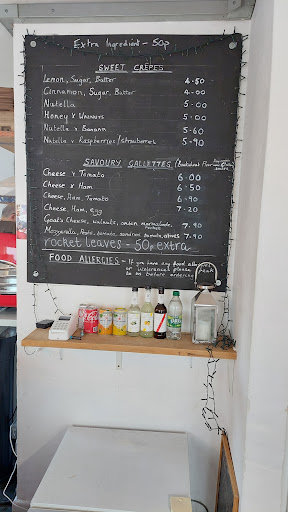 Extra Ingredient - 50p
SWEET CRÊPES
Lemon, Sugar, Butter 4.50
Cinnamon, Sugar, Butter 4.00
Nutella 5.00
Honey & Walnuts 5.00
Nutella & Banana 5.60
Nutella & Raspberries/strawberries 5.90
SAVOURY GALLETTES
Cheese & Tomato 6.00
Cheese & Ham 6.50
Cheese, Ham, Tomato 6.90
Cheese, Ham, egg 7.20
Goats Cheese, walnuts, onion marmalade, rocket 7.90
Mozzarella, Pesto, tomato, sundried tomato, olives 7.90
rocket leaves - 50p extra
FOOD ALLERGIES - If you have any food allergies
or intolerances please